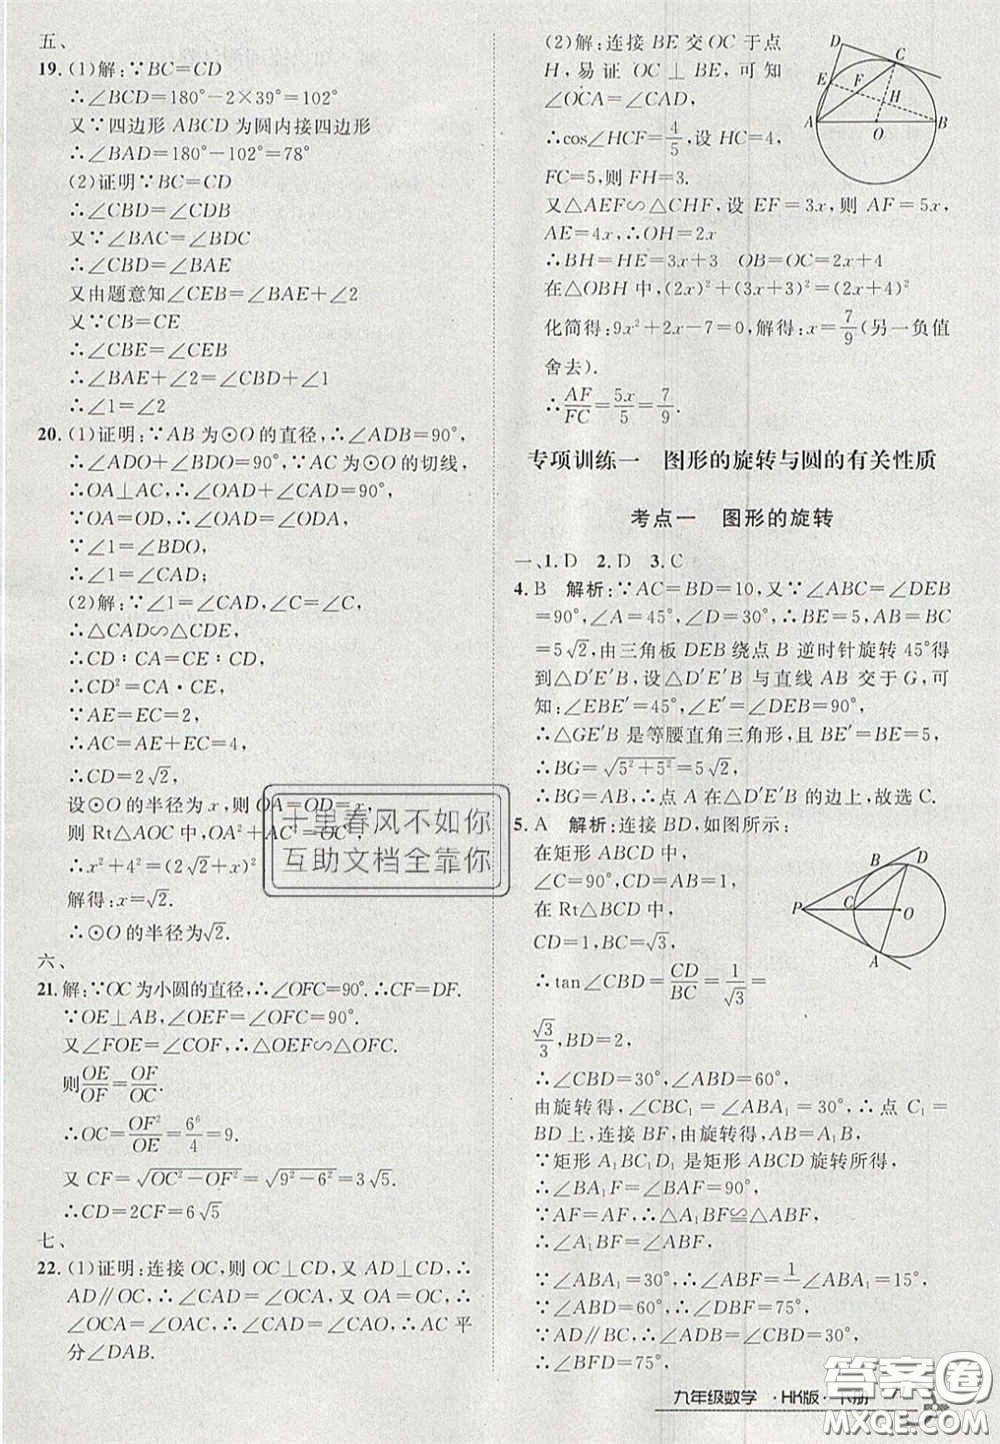 五、
19. (1)解:∵BC=CD
∴∠BCD=180°-2×39°=102°
又∵四边形 ABCD 为圆内接四边形
∴∠BAD=180°-102°=78°
(2)证明∵BC=CD
∴∠CBD=∠CDB
又∵∠BAC=∠BDC
∴∠CBD=∠BAE
又由题意知∠CEB=∠BAE+∠2
又∵CB=CE
∴∠CBE=∠CEB
∴∠BAE+∠2=∠CBD+∠1
∴∠1=∠2
20. (1)证明:∵AB 为⊙O 的直径,∴∠ADB=90°,
∴∠ADO+∠BDO=90°,∵AC 为⊙O 的切线,
∴OA⊥AC,∴∠OAD+∠CAD=90°,
∵OA=OD,∴∠OAD=∠ODA,
∴∠1=∠BDO,
∴∠1=∠CAD;
(2)解:∵∠1=∠CAD,∠C=∠C,
∴△CAD∽△CDE,
∴CD∶CA=CE∶CD,
∴CD²=CA·CE,
∵AE=EC=2,
∴AC=AE+EC=4,
∴CD=2√2.
设⊙O 的半径为 x,则 OA=OD=x,
则 Rt△AOC 中,OA²+AC²=OC²,
∴x²+4²=(2√2+x)²
解得:x=√2.
∴⊙O 的半径为√2.
六、
21. 解:∵OC 为小圆的直径,∴∠OFC=90°.∴CF=DF.
∵OE⊥AB,∴∠OEF=∠OFC=90°.
又∠FOE=∠COF,∴△OEF∽△OFC.
则OE/OF=OF/OC.
∴OC=OF²/OE=6⁶/4=9.
又 CF=√(OC²-OF²)=√(9²-6²)=3√5
∴CD=2CF=6√5
七、
22. (1)证明:连接 OC,则 OC⊥CD,又 AD⊥CD,∴
AD∥OC,∴∠CAD=∠OCA,又 OA=OC,∴
∠OCA=∠OAC,∴∠CAD=∠CAO,∴AC 平
分∠DAB.
(2)解:连接 BE 交 OC 于点
H,易证 OC⊥BE,可知
∠OCA=∠CAD,
∴cos∠HCF=4/5,设 HC=4,
FC=5,则 FH=3.
又△AEF∽△CHF,设 EF=3x,则 AF=5x,
AE=4x,∴OH=2x
∴BH=HE=3x+3 OB=OC=2x+4
在△OBH 中,(2x)²+(3x+3)²=(2x+4)²
化简得:9x²+2x-7=0,解得:x=7/9(另一负值
舍去).
∴AF/FC=5x/5=7/9.
D C E F H A O B
专项训练一 图形的旋转与圆的有关性质
考点一 图形的旋转
一、1. D 2. D 3. C
4. B 解析:∵AC=BD=10,又∵∠ABC=∠DEB
=90°,∠A=45°,∠D=30°,∴BE=5,AB=BC
=5√2,由三角板 DEB 绕点 B 逆时针旋转 45°得
到△D′E′B,设△D′E′B 与直线 AB 交于 G,可
知:∠EBE′=45°,∠E′=∠DEB=90°,
∴△GE′B 是等腰直角三角形,且 BE′=BE=5,
∴BG=√(5²+5²)=5√2,
∴BG=AB,∴点 A 在△D′E′B 的边上,故选 C.
5. A 解析:连接 BD,如图所示:
在矩形 ABCD 中,
∠C=90°,CD=AB=1,
在 Rt△BCD 中,
CD=1,BC=√3,
∴tan∠CBD=CD/BC=1/√3=
√3/3,BD=2,
∴∠CBD=30°,∠ABD=60°,
由旋转得,∠CBC₁=∠ABA₁=30°,∴点 C₁=
BD 上,连接 BF,由旋转得,AB=A₁B,
∵矩形 A₁BC₁D₁ 是矩形 ABCD 旋转所得,
∴∠BA₁F=∠BAF=90°,
∵AF=AF,∴△A₁BF≌△ABF,
∴∠A₁BF=∠ABF,
∵∠ABA₁=30°,∴∠ABF=1/2∠ABA₁=15°,
∵∠ABD=60°,∴∠DBF=75°,
∵AD∥BC,∴∠ADB=∠CBD=30°,
∴∠BFD=75°,
B D P C O A
十里春风不如你
互助文档全靠你
九年级数学 ·HK版· 下册
答案圈
MXQE.COM